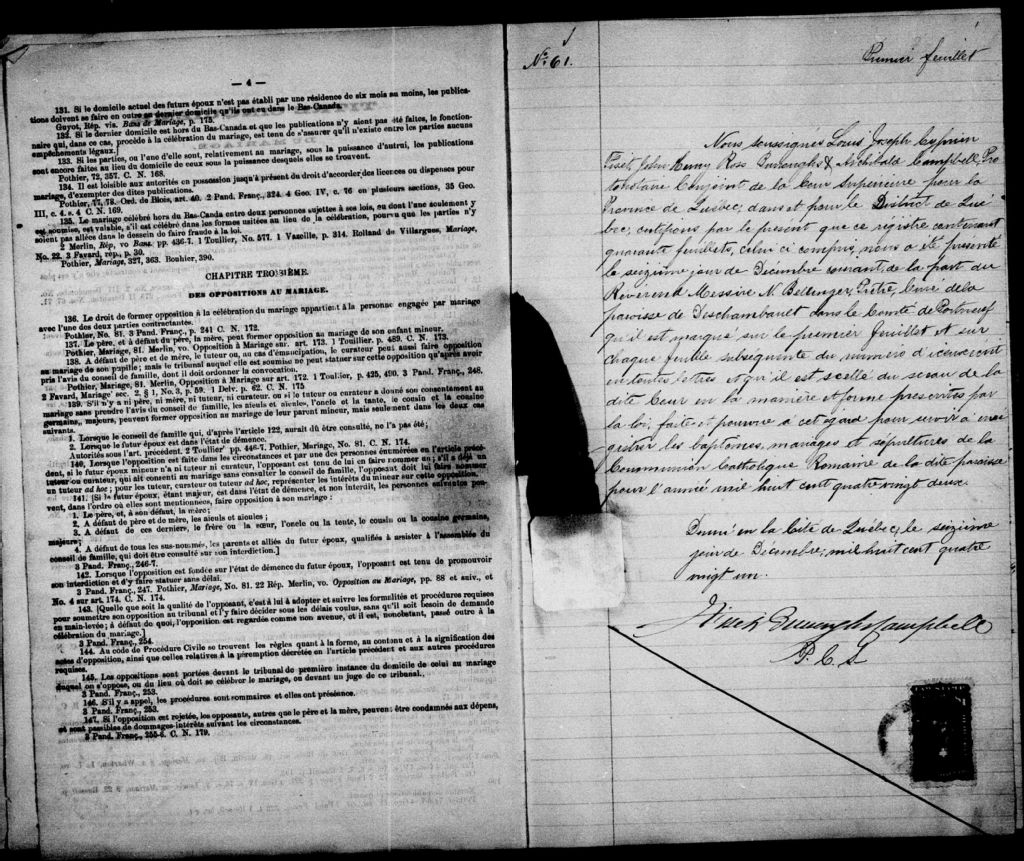 — 4 —
131. Si le domicile actuel des futurs époux n'est pas établi par une résidence de six mois au moins, les publica-
tions doivent se faire en outre au dernier domicile qu'ils ont eu dans le Bas-Canada.
Guyot, Rép. vis. Bans de Mariage, p. 175.
132. Si le dernier domicile est hors du Bas-Canada et que les publications n'y aient pas été faites, le fonction-
naire qui, dans ce cas, procède à la célébration du mariage, est tenu de s'assurer qu'il n'existe entre les parties aucuns
empêchements légaux.]
133. Si les parties, ou l'une d'elle sont, relativement au mariage, sous la puissance d'autrui, les publications
sont encore faites au lieu du domicile de ceux sous la puissance desquels elles se trouvent.
Pothier, 72, 357. C. N. 168.
134. Il est loisible aux autorités en possession jusqu'à présent du droit d'accorder des licences ou dispenses pour
mariage, d'exempter des dites publications.
Pothier, 77, 78. Ord. de Blois, art. 40. 2 Pand. Franç., 324. 4 Geo. IV, c. 76 en plusieurs sections, 35 Geo.
III, c. 4. s. 4 C. N. 169.
135. Le mariage célébré hors du Bas-Canada entre deux personnes sujettes à ses lois, ou dont l'une seulement y
est soumise, est valable, s'il est célébré dans les formes usitées au lieu de la célébration, pourvu que les parties n'y
soient pas allées dans le dessein de faire fraude à la loi.
2 Merlin, Rép, vo Bans. pp. 436-7. 1 Toullier, No. 577. 1 Vazeille, p. 314. Rolland de Villargues, Mariage,
No. 22. 3 Favard, rép., p. 30.
Pothier, Mariage, 327, 363. Bouhier, 390.
CHAPITRE TROISIÈME.
DES OPPOSITIONS AU MARIAGE.
136. Le droit de former opposition à la célébration du mariage appartient à la personne engagée par mariage
avec l'une des deux parties contractantes.
Pothier, No. 81. 3 Pand. Franç., p. 241 C. N. 172.
137. Le père, et à défaut du père, la mère, peut former opposition au mariage de son enfant mineur.
Pothier, Mariage, 81. Merlin, vo. Opposition à Mariage sur. art. 173. 1 Touillier, p. 489. C. N. 173.
138. A défaut de père et de mère, le tuteur ou, au cas d'émancipation, le curateur peut aussi faire opposition
au mariage de son pupille; mais le tribunal auquel elle est soumise ne peut statuer sur cette opposition qu'après avoir
pris l'avis du conseil de famille, dont il doit ordonner la convocation.
Pothier, Mariage, 81. Merlin, Opposition à Mariage sur art. 172. 1 Toullier, p. 425, 490. 3 Pand. Franç., 248.
2 Favard, Mariage sec. 2, § 1, No. 3, p. 59. 1 Delv. p. 62. C. N. 175
139. S'il n'y a ni père, ni mère, ni tuteur, ni curateur, ou si le tuteur ou curateur a donné son consentement au
mariage sans prendre l'avis du conseil de famille, les aïeuls et aïeules, l'oncle et la tante, le cousin et la cousine
germains, majeurs, peuvent former opposition au mariage de leur parent mineur, mais seulement dans les deux cas
suivants.
1. Lorsque le conseil de famille qui, d'après l'article 122, aurait dû être consulté, ne l'a pas été;
2. Lorsque le futur époux est dans l'état de démence.
Autorités sous l'art. précédent. 2 Toullier pp. 446-7. Pothier, Mariage, No. 81. C. N. 174.
140. Lorsque l'opposition est faite dans les circonstances et par une des personnes énumérées en l'article précé-
dent, si le futur époux mineur n'a ni tuteur ni curateur, l'opposant est tenu de lui en faire nommer un; s'il a déjà un
tuteur ou curateur, qui ait consenti au mariage sans consulter le conseil de famille, l'opposant doit lui faire nommer
un tuteur ad hoc; pour les tuteur, curateur ou tuteur ad hoc, représenter les intérêts du mineur sur cette opposition.
141. [Si le futur époux, étant majeur, est dans l'état de démence, et non interdit, les personnes suivantes peu-
vent, dans l'ordre où elles sont mentionnées, faire opposition à son mariage :
1. Le père, et, à son défaut, la mère;
2. A défaut de père et de mère, les aïeuls et aïeules;
3. A défaut de ces derniers, le frère ou la sœur, l'oncle ou la tente, le cousin ou la cousine germains,
majeurs;
4. A défaut de tous les sus-nommés, les parents et alliés du futur époux, qualifiés à assister à l'assemblée du
conseil de famille, qui doit être consulté sur son interdiction.]
3 Pand. Franç., 246-7.
142. Lorsque l'opposition est fondée sur l'état de démence du futur époux, l'opposant est tenu de promouvoir
son interdiction et d'y faire statuer sans délai.
3 Pand. Franç., 247. Pothier, Mariage, No. 81. 22 Rép. Merlin, vo. Opposition au Mariage, pp. 88 et suiv., et
No. 4 sur art. 174. C. N. 174.
143. [Quelque soit la qualité de l'opposant, c'est à lui à adopter et suivre les formalités et procédures requises
pour soumettre son opposition au tribunal et l'y faire décider sous les délais voulus, sans qu'il soit besoin de demande
en main-levée; à défaut de quoi, l'opposition est regardée comme non avenue, et il est, nonobstant, passé outre à la
célébration du mariage.]
3 Pand. Franç., 254.
144. Au code de Procédure Civile se trouvent les règles quant à la forme, au contenu et à la signification des
actes d'opposition, ainsi que celles relatives à la péremption décrétée en l'article précédent et aux autres procédures
requises.
145. Les oppositions sont portées devant le tribunal de première instance du domicile de celui au mariage
duquel on s'oppose, ou du lieu où doit se célébrer le mariage, ou devant un juge de ce tribunal.
3 Pand. Franç., 253.
146. S'il y a appel, les procédures sont sommaires et elles ont présence.
3 Pand. Franç., 253.
147. Si l'opposition est rejetée, les opposants, autres que le père et la mère, peuvent être condamnés aux dépens,
et sont passibles de dommages-intérêts suivant les circonstances.
3 Pand. Franç., 255-6. C. N. 179.
No. 61.
Premier feuillet
Nous soussignés Louis Joseph Cyprien
Fiset, John Henry Ross Burroughs & Archibald Campbell, Pro
tonotaire Conjoint de la Cour Supérieure pour la
Province de Québec, dans et pour le District de Qué
bec, certifions par le présent que ce régistre contenant
quarante feuillets, celui ci compris, nous a été présenté
le seizième jour de Décembre courant, de la part du
Révérend Messire N. Bellenger, Prêtre, Curé de la
paroisse de Deschambault dans le Comté de Portneuf
qu'il est marqué sur le premier feuillet et sur
chaque feuillet subséquent du numéro d'iceux écrit
en toutes lettres et qu'il est scellé du sceau de la
dite Cour en la manière et forme prescrites par
la loi, faite et pourvue à cet égard pour servir à enre
gistrer les baptêmes, mariages et sépultures de la
Communion Catholique Romaine de la dite paroisse
pour l'année mil huit cent quatre vingt deux.
Donné en la Cité de Québec, le seizième
jour de Décembre, mil huit cent quatre
vingt un.
Fiset Burroughs Campbell
P. C. S.